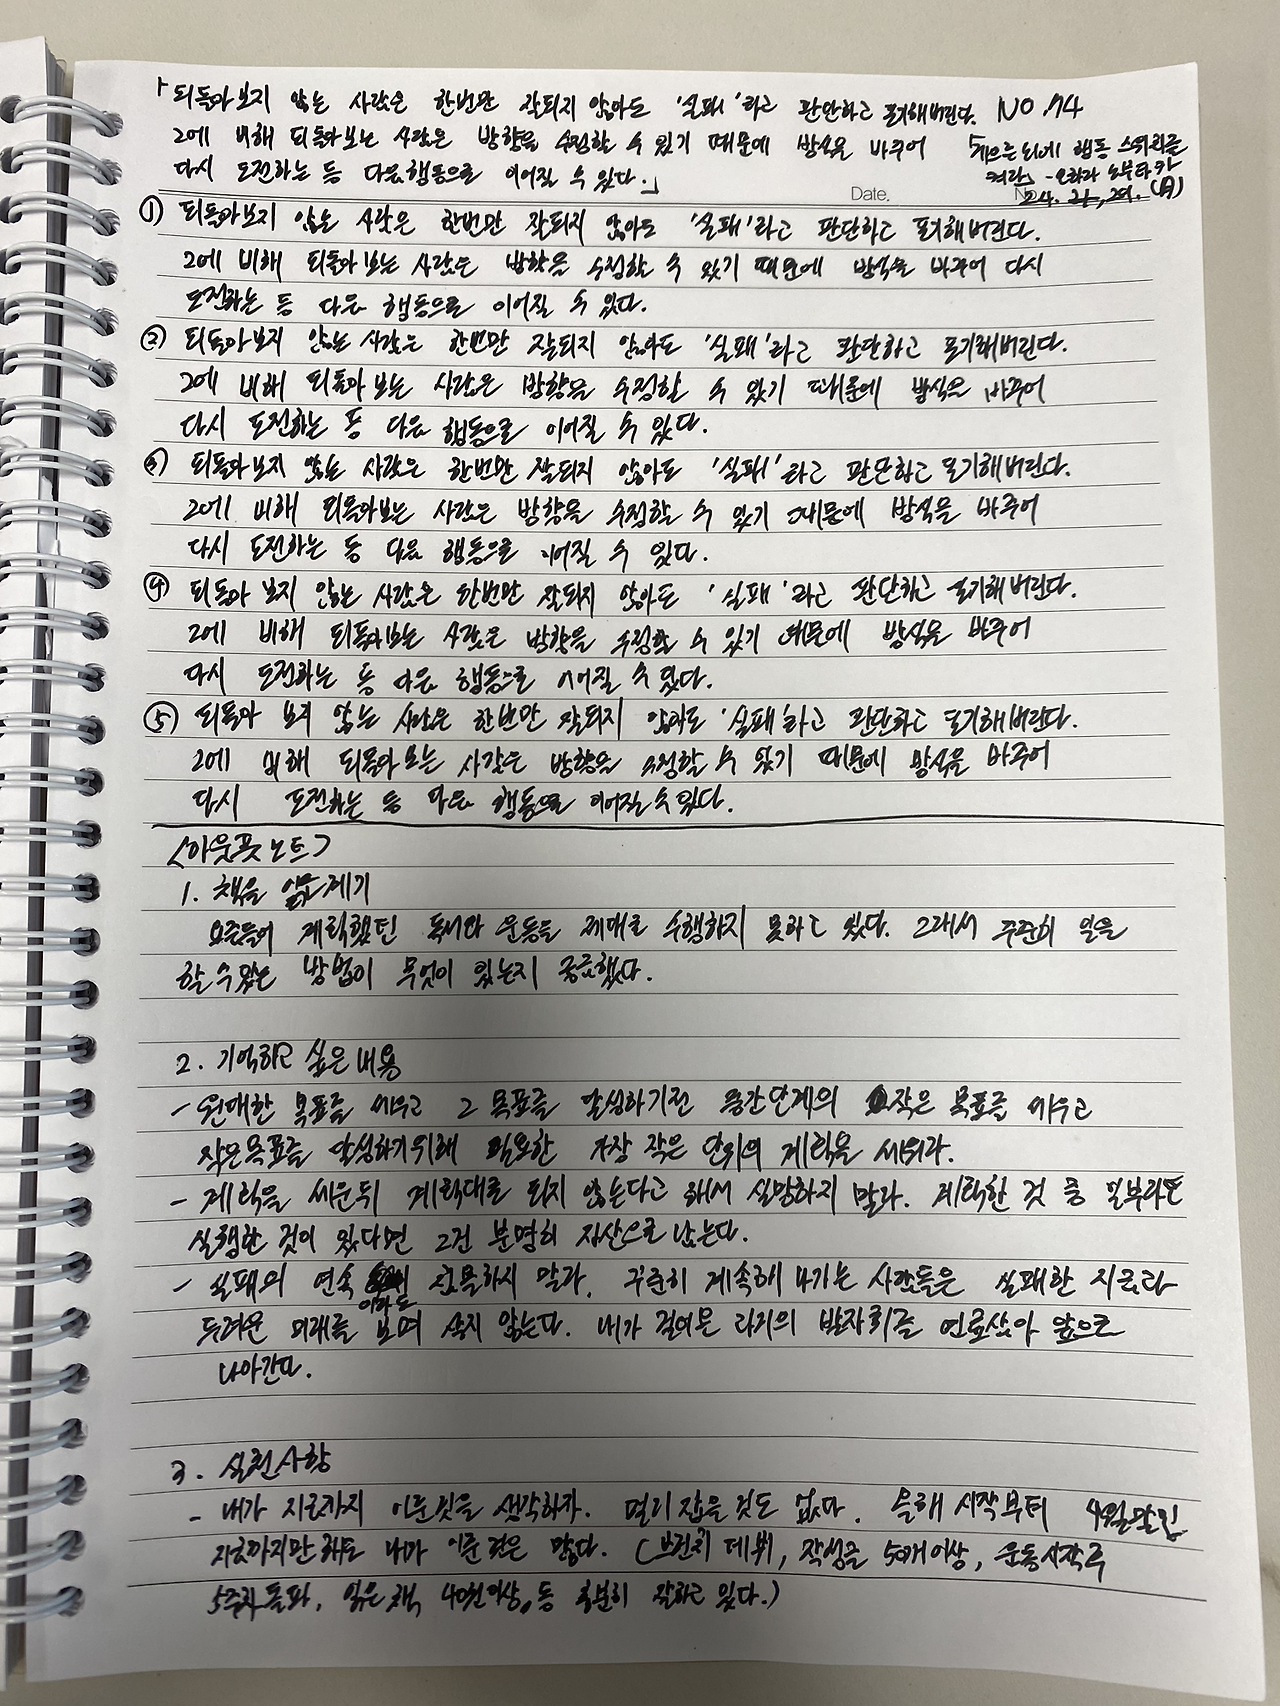 「되돌아보지 않는 사람은 한번만 잘되지 않아도 '실패'라고 판단하고 포기해버린다. NO.74
그에 비해 되돌아보는 사람은 방향을 수정할 수 있기 때문에 방식을 바꾸어 『게으른 뇌에 행동 스위치를
다시 도전하는 등 다음행동으로 이어질 수 있다.」 켜라』 - 오히라 노부타카
Date. No 24. 4. 29. (月)
① 되돌아보지 않는 사람은 한번만 잘되지 않아도 '실패'라고 판단하고 포기해버린다.
그에 비해 되돌아보는 사람은 방향을 수정할 수 있기 때문에 방식을 바꾸어 다시
도전하는 등 다음 행동으로 이어질 수 있다.
② 되돌아보지 않는 사람은 한번만 잘되지 않아도 '실패'라고 판단하고 포기해버린다.
그에 비해 되돌아보는 사람은 방향을 수정할 수 있기 때문에 방식을 바꾸어
다시 도전하는 등 다음 행동으로 이어질 수 있다.
③ 되돌아보지 않는 사람은 한번만 잘되지 않아도 '실패'라고 판단하고 포기해버린다.
그에 비해 되돌아보는 사람은 방향을 수정할 수 있기 때문에 방식을 바꾸어
다시 도전하는 등 다음 행동으로 이어질 수 있다.
④ 되돌아 보지 않는 사람은 한번만 잘되지 않아도 '실패'라고 판단하고 포기해버린다.
그에 비해 되돌아보는 사람은 방향을 수정할 수 있기 때문에 방식을 바꾸어
다시 도전하는 등 다음 행동으로 이어질 수 있다.
⑤ 되돌아 보지 않는 사람은 한번만 잘되지 않아도 '실패'라고 판단하고 포기해버린다.
그에 비해 되돌아보는 사람은 방향을 수정할 수 있기 때문에 방식을 바꾸어
다시 도전하는 등 다음 행동으로 이어질 수 있다.
<아웃풋 노트>
1. 책을 읽은 계기
요즘들어 계획했던 독서와 운동을 제대로 수행하지 못하고 있다. 그래서 꾸준히 일을
할 수 있는 방법이 무엇이 있는지 궁금했다.
2. 기억하고 싶은 내용
- 원대한 목표를 세우고 그 목표를 달성하기전 중간단계의 작은 목표를 세우고
작은목표를 달성하기위해 필요한 가장 작은 단위의 계획을 세워라.
- 계획을 세운뒤 계획대로 되지 않는다고 해서 실망하지 말라. 계획한 것 중 일부라도
실행한 것이 있다면 그건 분명히 자산으로 남는다.
- 실패의 연속이라도 실망하지 말라. 꾸준히 계속해 나가는 사람들은 실패한 지금과
두려운 미래를 보며 살지 않는다. 내가 걸어온 과거의 발자취를 연료삼아 앞으로
나아간다.
3. 실천사항
- 내가 지금까지 이룬것을 생각하자. 멀리 잡을 것도 없다. 올해 시작부터 4월말인
지금까지만 해도 내가 이룬 것은 많다. (브런치 데뷔, 작성글 50개이상, 운동시작후
5주차 돌파, 읽은 책 40권이상, 등 충분히 잘하고 있다.)